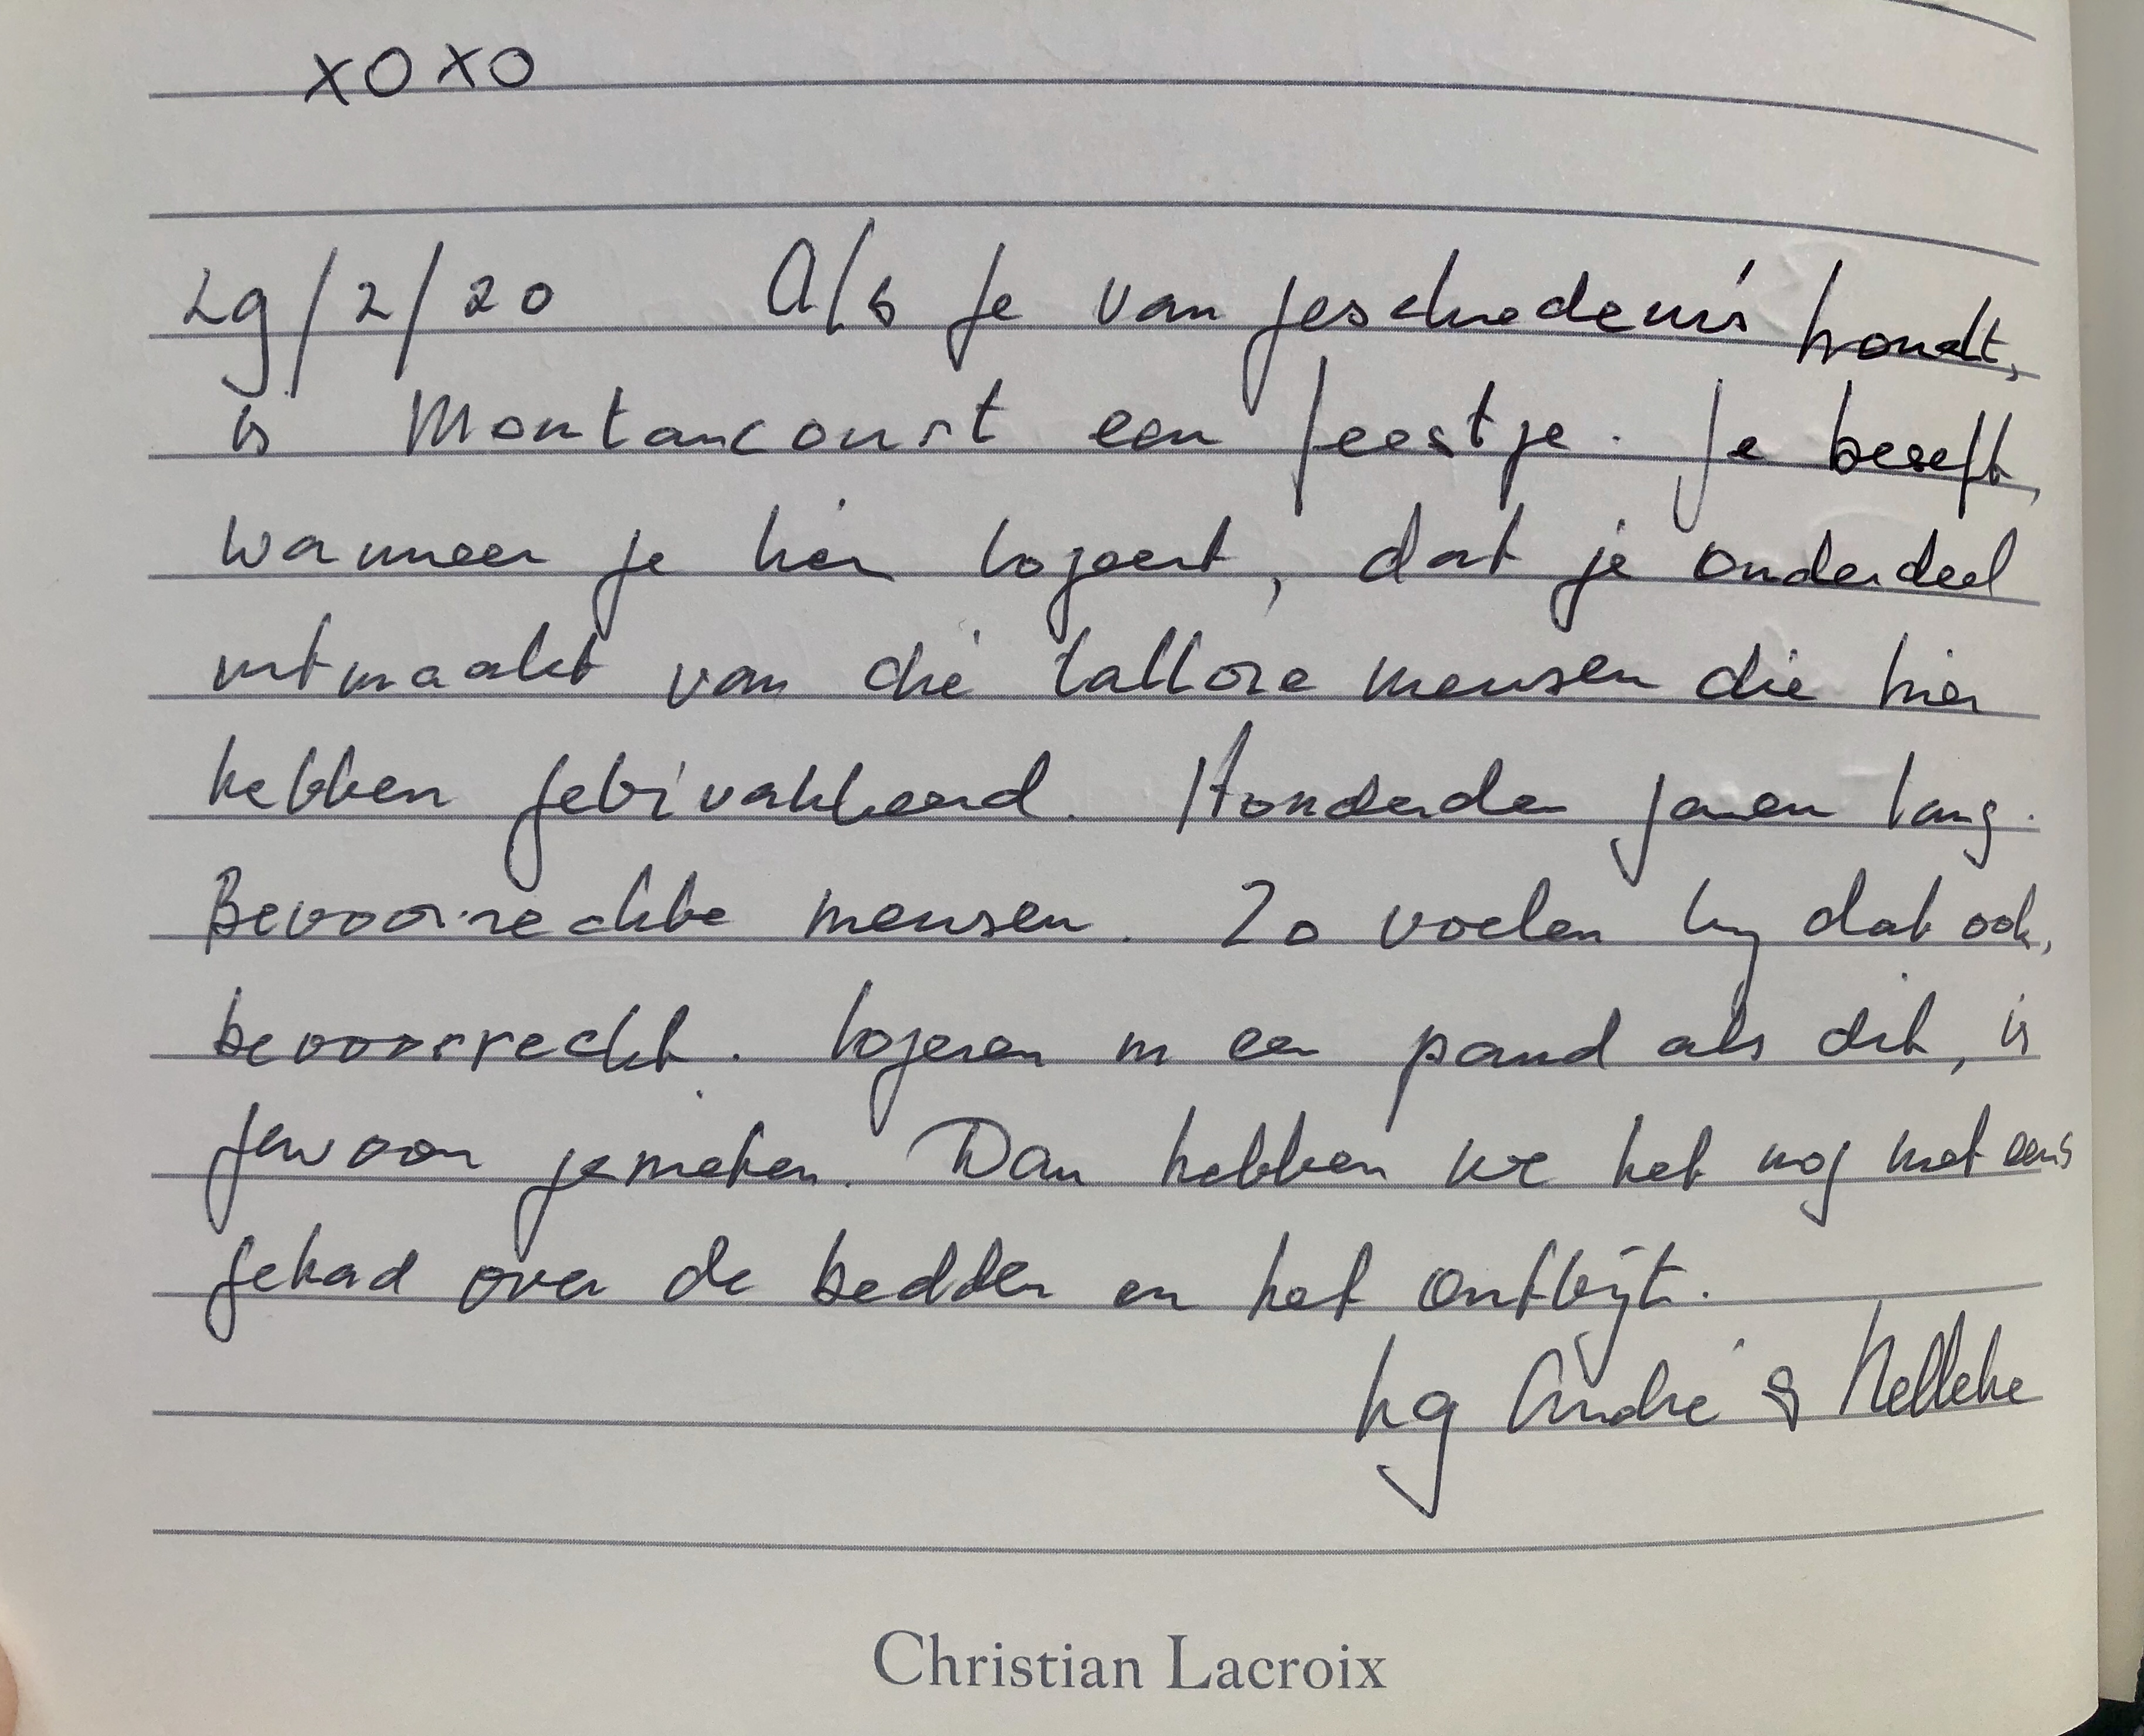 XOXO
29/2/20 Als je van geschiedenis houdt,
is Montancourt een feestje. Je beseft,
wanneer je hier logeert, dat je onderdeel
uitmaakt van die talloze mensen die hier
hebben gebivakkeerd. Honderden jaren lang.
Bevoorrechte mensen. Zo voelen wij dat ook,
bevoorrecht. Logeren in een pand als dit, is
gewoon genieten. Dan hebben we het nog niet eens
gehad over de bedden en het ontbijt.
hg André & Nelleke
Christian Lacroix